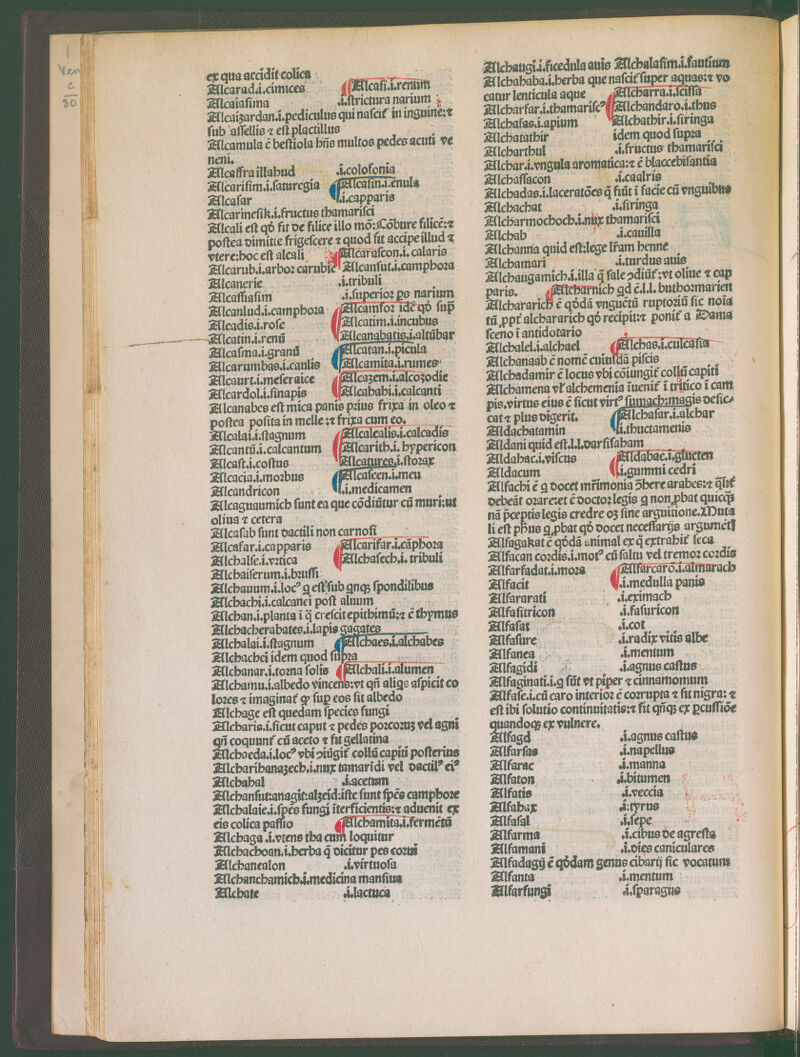 1
Ven
c
80
ex qua accidit colica
Alcarad.i.cimices Alcasi.i.renum
Alcaiasima .i.strictura narium
Alcaizardan.i.pediculus qui nascit᷑ in inguine:⁊
sub assellis ⁊ est plactillus
Alcamula ē bestiola hn̄s multos pedes acuti ve
neni.
Alcassra illabud .i.colofonia
Alcarisim.i.saturegia Alcasin.i.enula
Alcasar .i.capparis
Alcarinesik.i.fructus thamarisci
Alcali est qd̄ fit de filice illo mō:Cōbure filicē:⁊
postea dimitte frigescere ⁊ quod fit accipe illud ⁊
vtere:hoc est alcali Alcarascon.i.calaris
Alcarub.i.arbor carubie Alcansut.i.camphora
Alcanerie .i.tribuli
Alcassiasim .i.superior ps narium
Alcanlud.i.camphora Alcamfor idē qd̄ sup̄
Alcadis.i.rose Alcatim.i.incubus
Alcatin.i.renū Alcanabatis.i.altūbar
Alcasma.i.granū Alcatan.i.picula
Alcarumbas.i.caulis Alcamita.i.rumes
Alcaurt.i.meseraice Alcazem.i.alcozodie
Alcardol.i.sinapis Alcahabi.i.calcanti
Alcanabes est mica panis prius frixa in oleo ⁊
postea posita in melle:⁊ frixa cum eo.
Alcalai.i.stagnum Alcalcalis.i.calcadis
Alcantū.i.calcantum Alcarith.i.hypericon
Alcast.i.costus Alcatures.i.storax
Alcacia.i.morbus Alcasceen.i.meu
Alcandricon .i.medicamen
Alcaguaumich sunt ea que cōdiūtur cū muri:ut
oliua ⁊ cetera
Alcasab sunt dactili non carnosi
Alcasar.i.capparis Alcarisar.i.cāphora
Alchalse.i.vrtica Alchasech.i.tribuli
Alchaiserum.i.brussi
Alchauum.i.locꝰ q est sub qnqꝫ spondilibus
Alchachi.i.calcanei post aluum
Alchan.i.planta ī q̄ crescit epithimū:⁊ ē thymus
Alchacherabates.i.lapis gagates
Alchalai.i.stagnum Alchaes.i.alchabes
Alchachei idem quod supra
Alchanar.i.torna solis Alchali.i.alumen
Alchamu.i.albedo vincens:vt qn̄ aliqs aspicit co
lores ⁊ imaginat᷑ ꝙ sup eos sit albedo
Alchage est quedam species fungi
Alcharis.i.sicut caput ⁊ pedes porcoꝝ vel agni
qn̄ coquunt᷑ cū aceto ⁊ fit gellatina
Alchaeda.i.locꝰ vbi ↄiūgit᷑ collū capiti posterius
Alcharibanazech.i.nux tamarīdi vel dactilꝰ eiꝰ
Alchahal .i.acetum
Alchansut:anagit:alzeid:iste sunt sp̄es camphore
Alchalaie.i.sp̄es fungi īterficientis:⁊ aduenit ex
eis colica passio Alchamita.i.fermētū
Alchaga.i.vtens tha cum loquitur
Alchachoan.i.herba q̄ dicitur pes corui
Alchanealon .i.virtuosa
Alchanchamich.i.medicina mansiua
Alchate .i.lactuca
Alchaugi.i.ficedula auis Alchalasim.i.fautium
Alchahaba.i.herba que nascit᷑ super aquas:⁊ vo
catur lenticula aque Alcharra.i.scissa
Alcharfar.i.thamariscꝰ Alchandaro.i.thus
Alchafas.i.apium Alchathir.i.siringa
Alchatathir idem quod supra
Alcharthul .i.fructus thamarisci
Alchar.i.vngula aromatica:⁊ ē blaccebisantia
Alchassacon .i.caalris
Alchadas.i.laceratōes q̄ fiūt ī facie cū vnguibus
Alchachat .i.siringa
Alcharmochoch.i.nux thamarisci
Alchab .i.cauilla
Alchanna quid est:lege lr̄am henne
Alchamari .i.turdus auis
Alchangamich.i.illa q̄ sale ↄdiūt᷑:vt oliue ⁊ cap
paris. Alcharnich qd ē.l.l. buthormarien
Alchararich ē qd̄dā vnguētū ruptoriū sic noīa
tū ꝓpt᷑ alchararich qd̄ recipit:⁊ ponit᷑ a Dama
sceno ī antidotario
Alchalel.i.alchael Alchas.i.culcasia
Alchanaab ē nomē cuiusdā piscis
Alchadamir ē locus vbi cōiungit᷑ collū capiti
Alchamena vl᷑ alchemenia īuenit᷑ ī tritico ī cam
pis.virtus eius ē sicut virtꝰ sumach:magis desic
cat ⁊ plus digerit. Alchasar.i.alchar
Aldachatamin .i.thuctamenis
Aldani quid est.l.l.darsisaham
Aldabac.i.viscus Aldabac.i.glucten
Aldacum .i.gummi cedri
Alfachi ē q docet mr̄imonia ↄ̄bere arabes:⁊ q̄lit᷑
debeāt orare:et ē doctor legis q non ꝓbat quicq̄ꝫ
nā p̄ceptis legis credre oꝫ sine arguitione. Muta
li est ph̄us q ꝓbat qd̄ docet necessarijs argumēt᷑
Alfagakat ē qd̄dā animal ex q̄ extrahit᷑ seca
Alfacan cordis.i.motꝰ cū saltu vel tremor cordis
Alfarfadat.i.mora Alfarcarō.i.almarach
Alfacit .i.medulla panis
Alfararati .i.eximach
Alfasitricon .i.fasuricon
Alfasat .i.cot
Alfasure .i.radix vitis albe
Alfanea .i.mentum
Alfagidi .i.agnus castus
Alfaginati.i.q sūt vt piper ⁊ cinnamomum
Alfase.i.cū caro interior ē corrupta ⁊ fit nigra: ⁊
est ibi solutio continuitatis:⁊ fit qn̄qꝫ ex ꝑcussiōe
quandoqꝫ ex vulnere.
Alfagd .i.agnus castus
Alfarsas .i.napellus
Alfarac .i.manna
Alfaton .i.bitumen
Alfatis .i.veccia
Alfabax .i.tyrus
Alfasal .i.sepe
Alfarma .i.cibus de agresta
Alfamani .i.dies caniculares
Alfadagij ē qd̄dam genus cibarij sic vocatum
Alfanta .i.mentum
Alfarfungi .i.sparagus